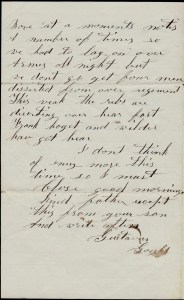 at a moments notis
A number of times so
we had to lay on over
arms all night but
we dont go yet four men
deserted from over regiment
This weak the rebs are
diserting over hear fast
Frank hoget and wilder
have got hear
I dont think
of eney more this
time so I must
Close good morning
kind father except
this from your son
And write often
Gustavus